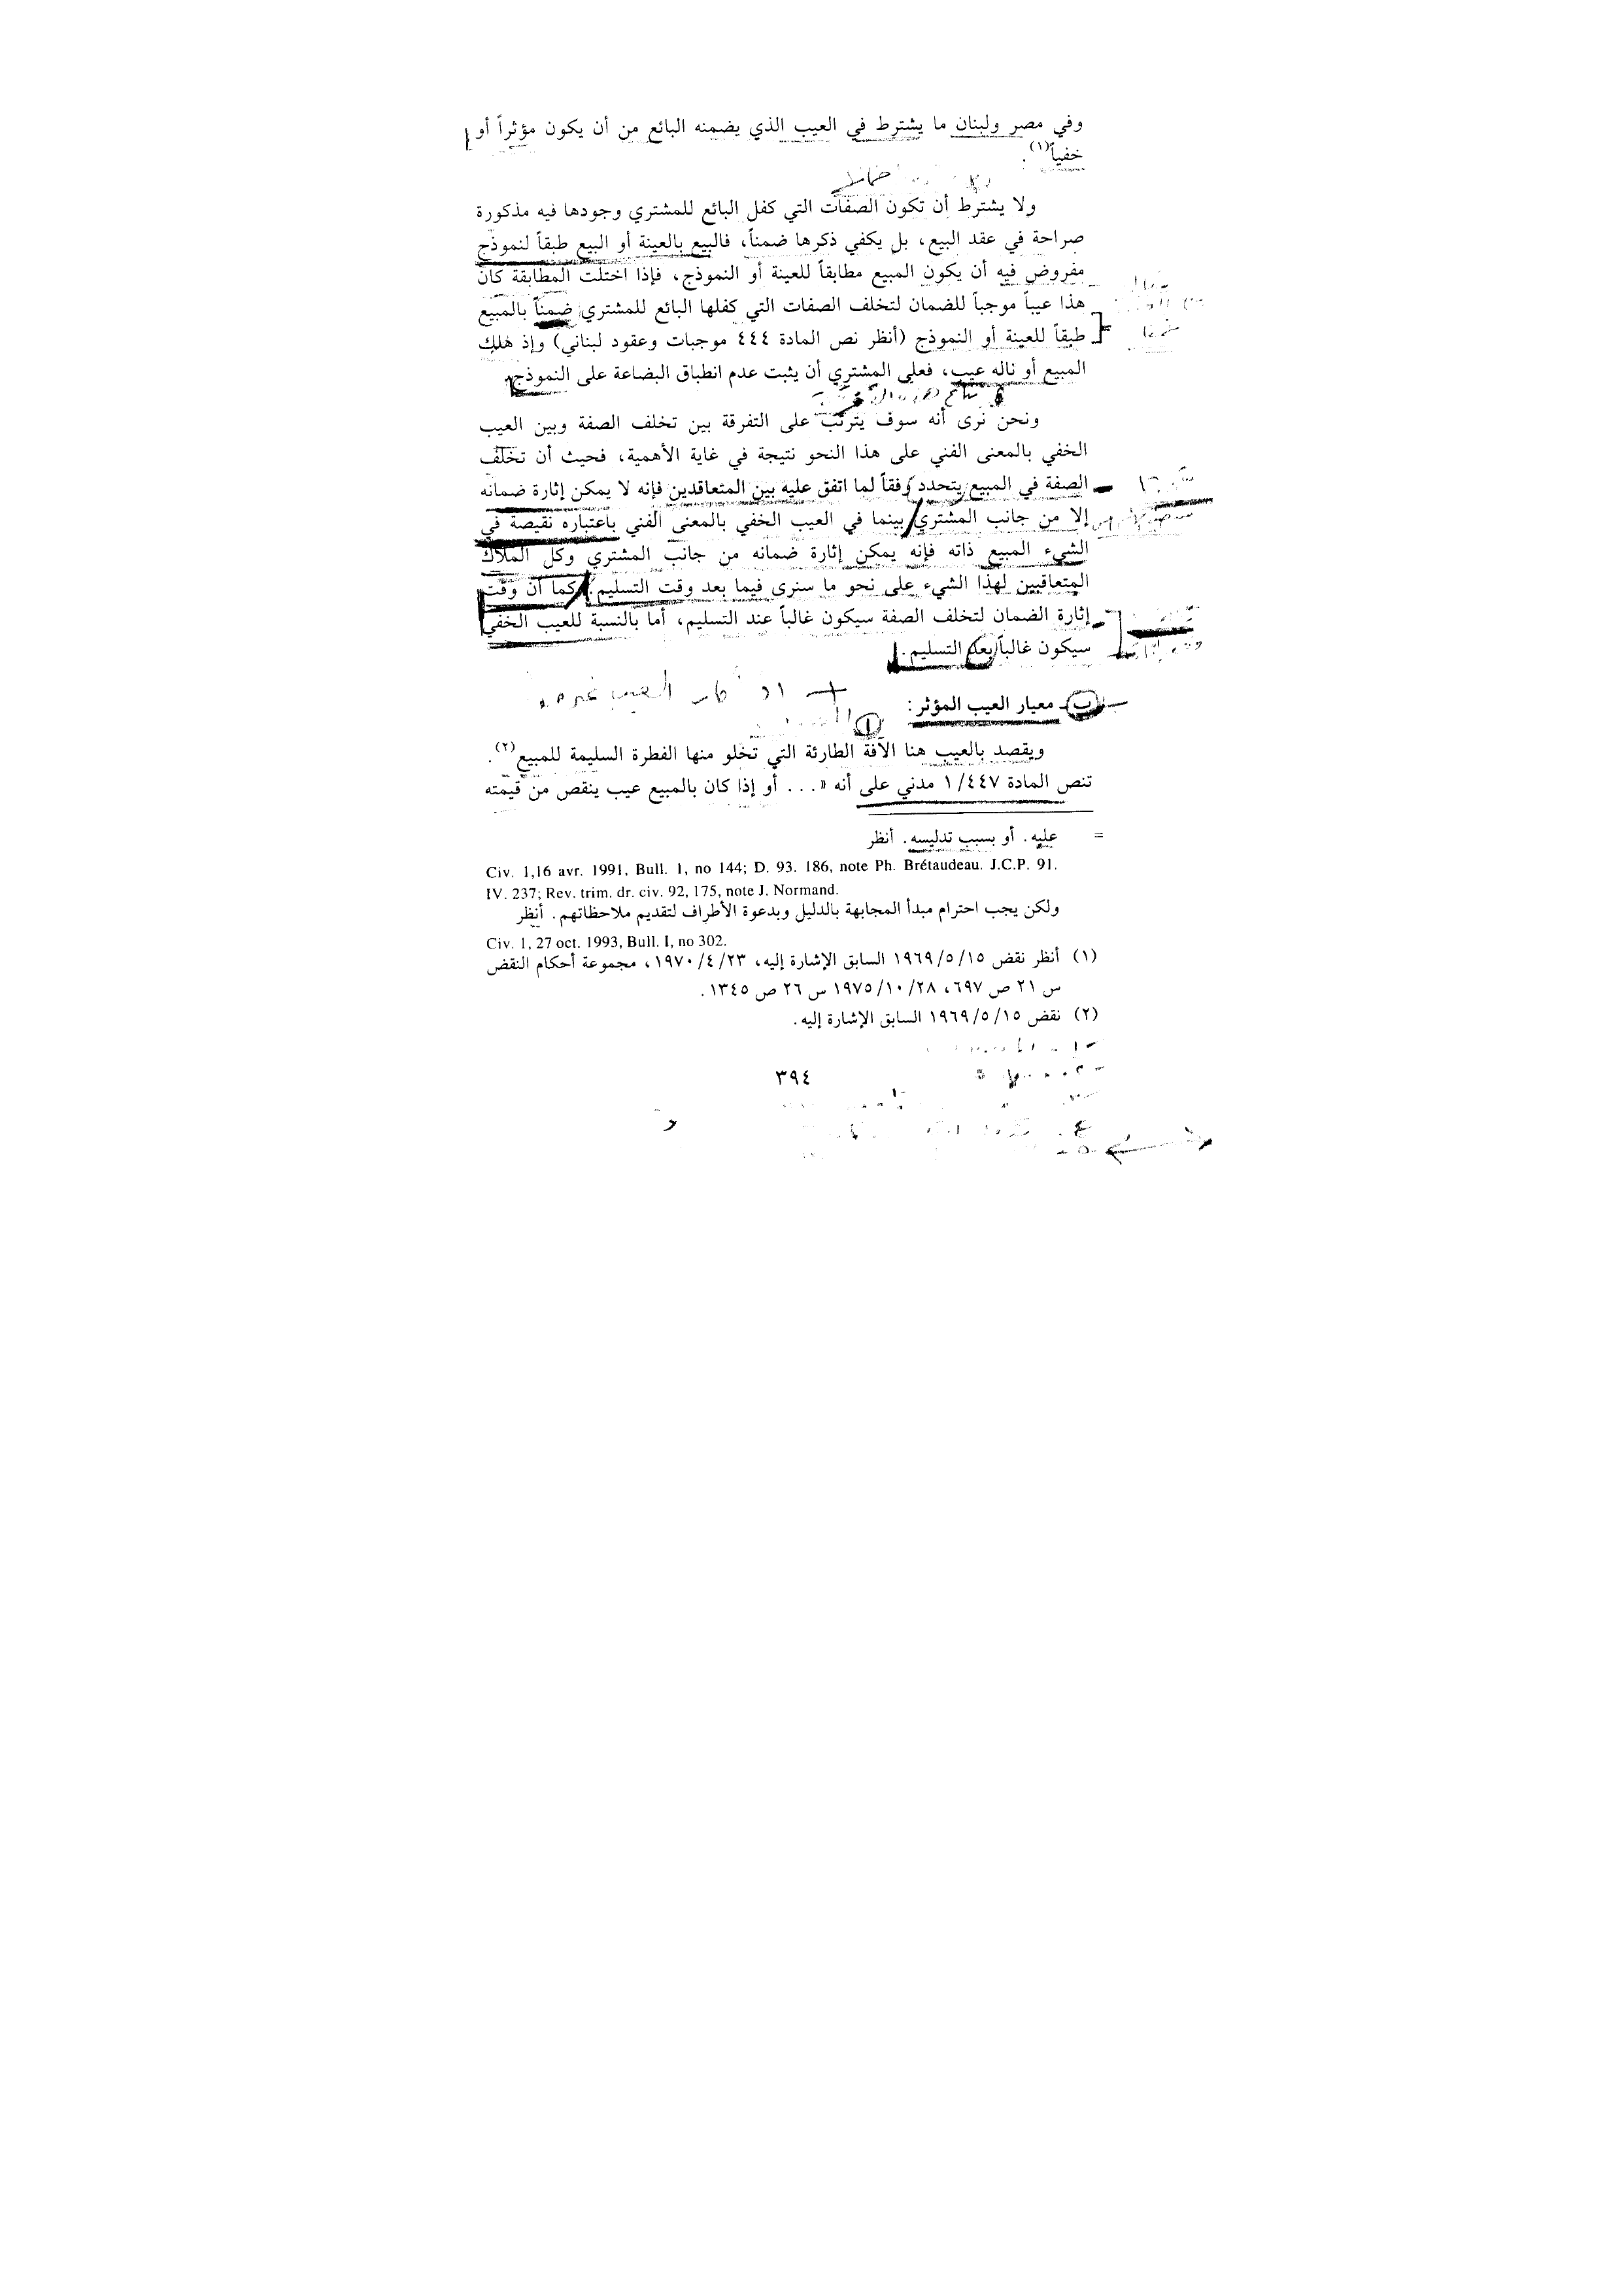 وفي مصر ولبنان ما يشترط في العيب الذي يضمنه البائع من أن يكون مؤثراً أو
خفياً(١).
ولا يشترط أن تكون الصفات التي كفل البائع للمشتري وجودها فيه مذكورة
صراحة في عقد البيع، بل يكفي ذكرها ضمناً، فالبيع بالعينة أو البيع طبقاً لنموذج
مفروض فيه أن يكون المبيع مطابقاً للعينة أو النموذج، فإذا اختلت المطابقة كان
هذا عيباً موجباً للضمان لتخلف الصفات التي كفلها البائع للمشتري ضمناً بالمبيع
طبقاً للعينة أو النموذج (أنظر نص المادة ٤٤٤ موجبات وعقود لبناني) وإذ هلك
المبيع أو ناله عيب، فعلى المشتري أن يثبت عدم انطباق البضاعة على النموذج.
ونحن نرى أنه سوف يترتب على التفرقة بين تخلف الصفة وبين العيب
الخفي بالمعنى الفني على هذا النحو نتيجة في غاية الأهمية، فحيث أن تخلف
الصفة في المبيع يتحدد وفقاً لما اتفق عليه بين المتعاقدين فإنه لا يمكن إثارة ضمانه
إلا من جانب المشتري بينما في العيب الخفي بالمعنى الفني باعتباره نقيصة في
الشيء المبيع ذاته فإنه يمكن إثارة ضمانه من جانب المشتري وكل الملاك
المتعاقبين لهذا الشيء على نحو ما سنرى فيما بعد وقت التسليم. كما أن وقت
إثارة الضمان لتخلف الصفة سيكون غالباً عند التسليم، أما بالنسبة للعيب الخفي
سيكون غالباً بعد التسليم.
ب - معيار العيب المؤثر:
ويقصد بالعيب هنا الآفة الطارئة التي تخلو منها الفطرة السليمة للمبيع(٢).
تنص المادة ١/٤٤٧ مدني على أنه «... أو إذا كان بالمبيع عيب ينقص من قيمته
= عليه. أو بسبب تدليسه. أنظر
Civ. 1,16 avr. 1991, Bull. 1, no 144; D. 93. 186, note Ph. Brétaudeau. J.C.P. 91.
IV. 237; Rev. trim. dr. civ. 92, 175, note J. Normand.
ولكن يجب احترام مبدأ المجابهة بالدليل وبدعوة الأطراف لتقديم ملاحظاتهم. أنظر
Civ. 1, 27 oct. 1993, Bull. I, no 302.
(١) أنظر نقض ١٩٦٩/٥/١٥ السابق الإشارة إليه، ١٩٧٠/٤/٢٣، مجموعة أحكام النقض
س ٢١ ص ٦٩٧، ١٩٧٥/١٠/٢٨ س ٢٦ ص ١٣٤٥.
(٢) نقض ١٩٦٩/٥/١٥ السابق الإشارة إليه.
٣٩٤